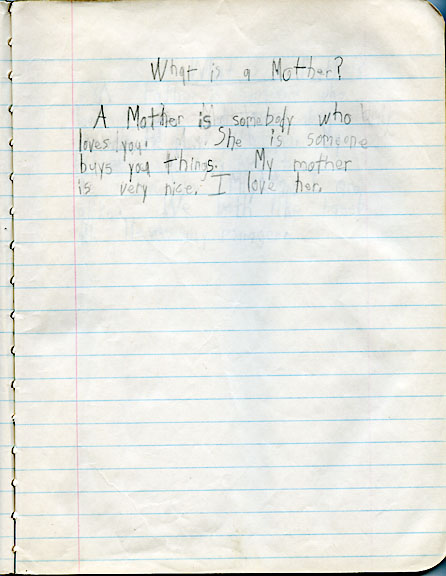 What is a Mother?
A Mother is somebody who
loves you. She is someone
buys you things. My mother
is very nice. I love her.